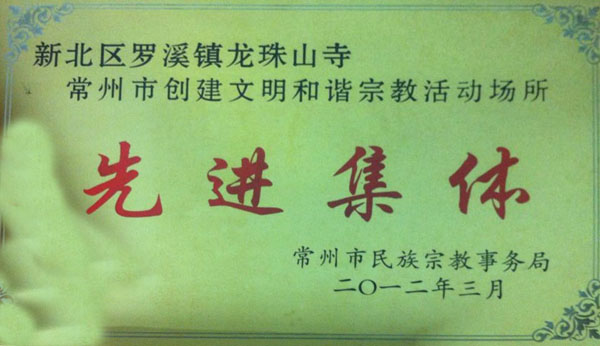 新北区罗溪镇龙珠山寺
常州市创建文明和谐宗教活动场所
先进集体
常州市民族宗教事务局
二〇一二年三月